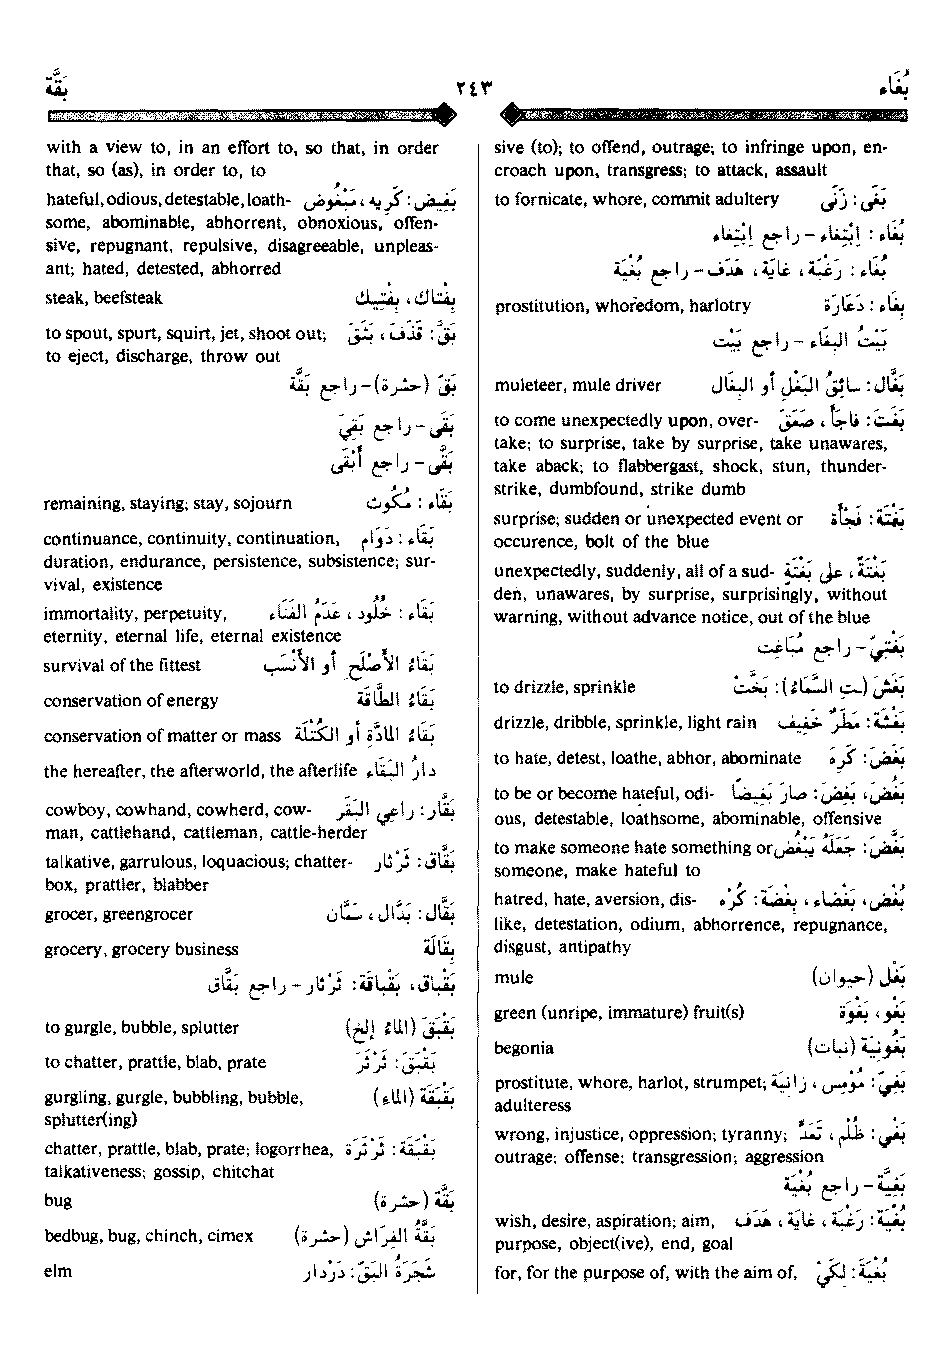 بُغَاء ٢٤٣ بَقَّة
sive (to); to offend, outrage; to infringe upon, en-
croach upon, transgress; to attack, assault
بَغَى : زَنَى to fornicate, whore, commit adultery
بُغَاء : اِبْتِغاء - راجع اِبْتِغَاء
بُغَاء : رَغْبَة ، غايَة ، هَدَف - راجع بُغْيَة
بِغَاء : دَعَارَة prostitution, whoredom, harlotry
بَيْتُ البِغَاء - راجع بَيْت
بَغَّال : سائِقُ البَغْلِ أو البِغَال muleteer, mule driver
بَغَتَ : فاجَأَ ، صَعَقَ to come unexpectedly upon, over-
take; to surprise, take by surprise, take unawares,
take aback; to flabbergast, shock, stun, thunder-
strike, dumbfound, strike dumb
بَغْتَة : فَجْأَة surprise; sudden or unexpected event or
occurence, bolt of the blue
بَغْتَةً ، على بَغْتَةٍ unexpectedly, suddenly, all of a sud-
den, unawares, by surprise, surprisingly, without
warning, without advance notice, out of the blue
بَغْتِيّ - راجع مُبَاغِت
بَغَشَ (ـتِ السَّمَاءُ) : بَخَّتْ to drizzle, sprinkle
بَغْشَة : مَطَرٌ خَفِيف drizzle, dribble, sprinkle, light rain
بَغَضَ : كَرِهَ to hate, detest, loathe, abhor, abominate
بَغُضَ ، بَغِضَ : صارَ بَغِيضًا to be or become hateful, odi-
ous, detestable, loathsome, abominable, offensive
بَغَّضَ : جَعَلَهُ يُبْغِضُ to make someone hate something or
someone, make hateful to
بُغْض ، بَغْضَاء ، بِغْضَة : كُرْه hatred, hate, aversion, dis-
like, detestation, odium, abhorrence, repugnance,
disgust, antipathy
بَغْل (حيوان) mule
بَغْو ، بَغْوَة green (unripe, immature) fruit(s)
بَغُونِيَة (نبات) begonia
بَغِيّ : مُومِس ، زانِيَة prostitute, whore, harlot, strumpet;
adulteress
بَغْي : ظُلْم ، تَعَدٍّ wrong, injustice, oppression; tyranny;
outrage; offense; transgression; aggression
بَغِيَّة - راجع بُغْيَة
بُغْيَة : رَغْبَة ، غايَة ، هَدَف wish, desire, aspiration; aim,
purpose, object(ive), end, goal
بُغْيَةَ : لِكَيْ for, for the purpose of, with the aim of,
with a view to, in an effort to, so that, in order
that, so (as), in order to, to
بَغِيض : كَرِيه ، مَبْغُوض hateful, odious, detestable, loath-
some, abominable, abhorrent, obnoxious, offen-
sive, repugnant, repulsive, disagreeable, unpleas-
ant; hated, detested, abhorred
بِفْتاك ، بِفْتِيك steak, beefsteak
بَقَّ : قَذَفَ ، بَثَقَ to spout, spurt, squirt, jet, shoot out;
to eject, discharge, throw out
بَقّ (حشرة) - راجع بَقَّة
بَقَى - راجع بَقِيَ
بَقَّى - راجع أَبْقَى
بَقَاء : مُكُوث remaining, staying; stay, sojourn
بَقَاء : دَوَام continuance, continuity, continuation,
duration, endurance, persistence, subsistence; sur-
vival, existence
بَقَاء : خُلُود ، عَدَمُ الفَنَاء immortality, perpetuity,
eternity, eternal life, eternal existence
بَقَاءُ الأَصْلَحِ أو الأَنْسَب survival of the fittest
بَقَاءُ الطَّاقَة conservation of energy
بَقَاءُ المادَّةِ أو الكُتْلَة conservation of matter or mass
دارُ البَقَاء the hereafter, the afterworld, the afterlife
بَقَّار : راعِي البَقَر cowboy, cowhand, cowherd, cow-
man, cattlehand, cattleman, cattle-herder
بَقَّاق : ثَرْثار talkative, garrulous, loquacious; chatter-
box, prattler, blabber
بَقَّال : بَدَّال ، سَمَّان grocer, greengrocer
بِقَالَة grocery, grocery business
بَقْبَاق ، بَقْبَاقَة : ثَرْثار - راجع بَقَّاق
بَقْبَقَ (الماءُ إلخ) to gurgle, bubble, splutter
بَقْبَقَ : ثَرْثَرَ to chatter, prattle, blab, prate
بَقْبَقَة (الماء) gurgling, gurgle, bubbling, bubble,
splutter(ing)
بَقْبَقَة : ثَرْثَرَة chatter, prattle, blab, prate; logorrhea,
talkativeness; gossip, chitchat
بَقَّة (حشرة) bug
بَقَّةُ الفِرَاش (حشرة) bedbug, bug, chinch, cimex
شَجَرَةُ البَقّ : دَرْدار elm